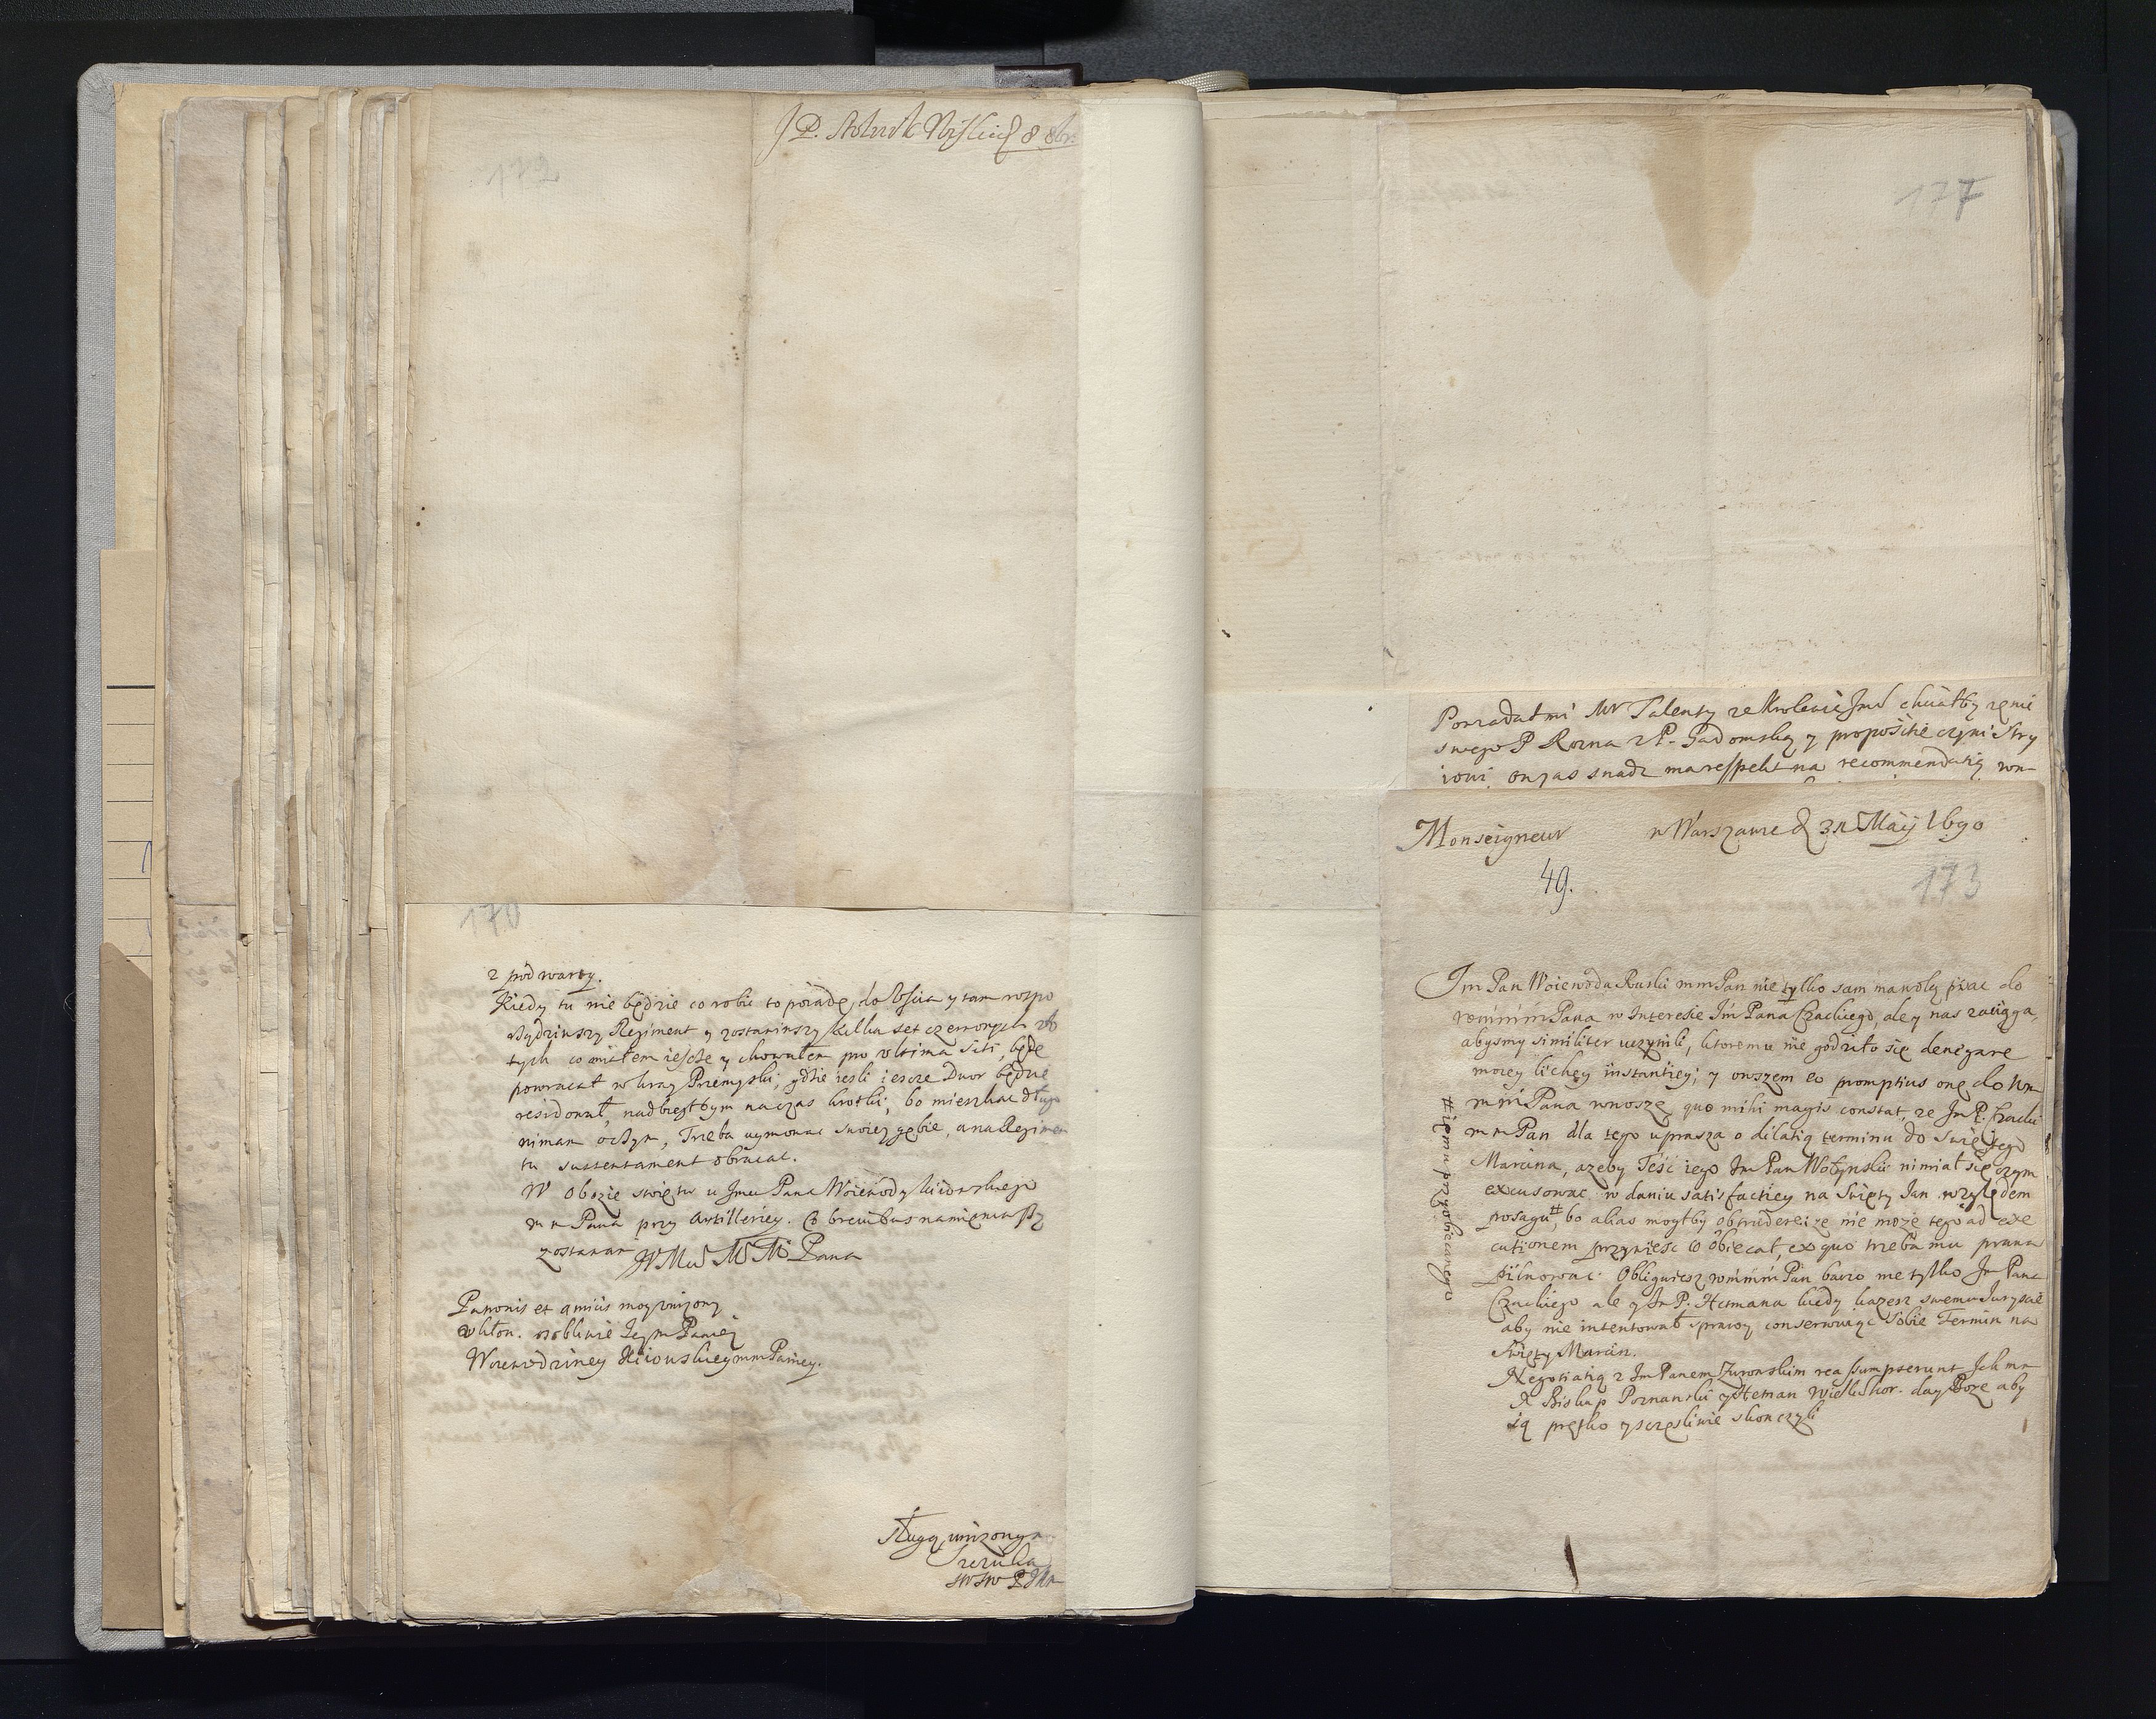 JP. Stolnik 8 8br.
172
170
z pod warty.
Kiedy tu nie będzie co robic to poiadę do y tam rozpo
Regiment y zostawiwszy kilka set czerwonych zło
tych co miałem iescze y chowałem pro ultima siti, będę
powracał w kray Przemyski, gdzie iesli iescze Dwor będzie
residował, nadbiegłbym na czas krotki, bo mieszkac długo
nimam oczym, Trzeba uymowac swoiey gębie, a na Regimen
tu sustentament obracac.
W Obozie swięta u Jmci Pana Woiewody kiiowskiego
m m Pana przy Artilleriey. brevibus
zostawam WM M M Pana
Patronis et amicis moy unizony
ukłon. osobliwie Jeym Paniey
Woiewodziney Kiiowskiey mm Paniey.
sługą unizonym
177
Powiadał mi Mr Talenty ze Krolewic Jmc chciałby zenic
swego P Rozna z P. Gadomską y proposicie czyni Stry
iowi on zas snadz ma respekt na recommendatią wm
Monseigneur w Warszawie d 31 Maÿ 1690
49.
173
Jm Pan Woiewoda Ruski mm Pan nie tylko sam ma wolą pisac do
wmmm Pana w Interesie Jm Pana Czackiego, ale y nas zaciąga,
abysmy similiter uczynili, ktoremu nie godziło się denegare
moiey lichey instantiey; y owszem eo promptius onę do Wm
mm Pana wnoszę quo mihi magis constat, ze Jm P. Czacki
m m Pan dla tego uprasza o dilatią terminu do swiętego
Marcina, azeby Teść iego Jm Pan Wołynski nimiał się czym
excusowac w daniu satisfactiey na Swięty Jan względem
posagu #, bo alias mogłby obtrudere ize nie może tego ad exe
cutionem przyniesc co obiecał, ex quo trzeba mu prawa
pilnowac. Obliguiesz wmmm Pan barzo nie tylko Jm Pana
Czackiego ale y Jm P. Hetmana kiedy kazesz swemu Juryscie
aby nie intentował sprawy conserwuiąc sobie Termin na
Swięty Marcin.
# iemu przyobiecanego
Negotiatią z Jm Panem Zurowskim reassumpserunt Ich mm
X Biskup Poznanski y Hetman Wielki kor. day Boze aby
ią prętko y sczęsliwie skonczyli